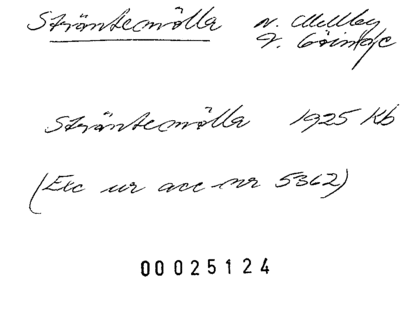 Sträntemölla N. Mellby
V. Göinge
Sträntemölla 1925 Kb
(Exc ur acc nr 5362)
00025124